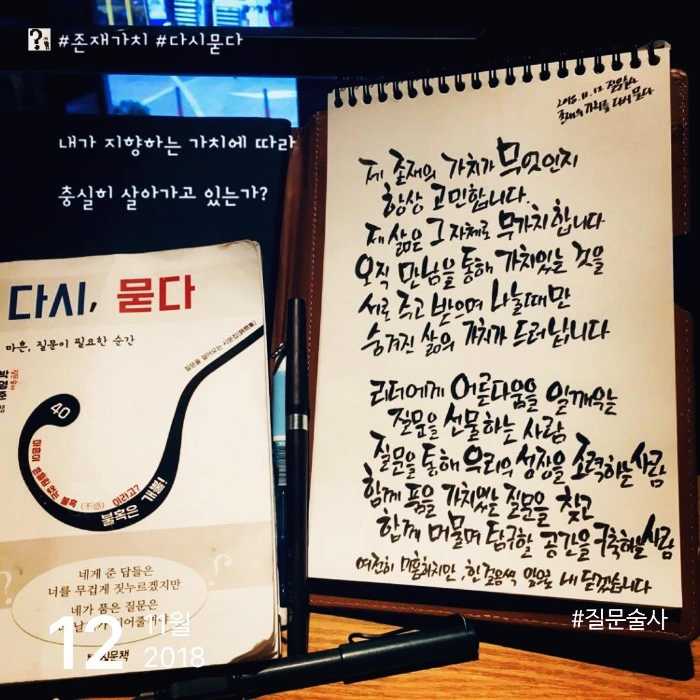 #존재가치 #다시묻다
내가 지향하는 가치에 따라
충실히 살아가고 있는가?
다시, 묻다
마흔, 질문이 필요한 순간
박영준
40
마음이 흔들림 없는 불혹(不惑)이라고?
불혹은 개뿔!
네게 준 답들은
너를 무겁게 짓누르겠지만
네가 품은 질문은
12 11월
2018
2018. 11. 12 질문술사
존재의 가치를 다시 묻다
제 존재의 가치가 무엇인지
항상 고민합니다.
제 삶은 그 자체로 무가치합니다
오직 만남을 통해 가치있는 것을
서로 주고 받으며 나눌때만
숨겨진 삶의 가치가 드러납니다
리더에게 어른다움을 일깨우는
질문을 선물하는 사람
질문을 통해 우리의 성장을 조력하는 사람
함께 품을 가치있는 질문을 찾고
함께 머물며 탐구할 공간을 구축하는 사람
여전히 미흡하지만, 한 걸음씩 앞으로 내 딛겠습니다
#질문술사